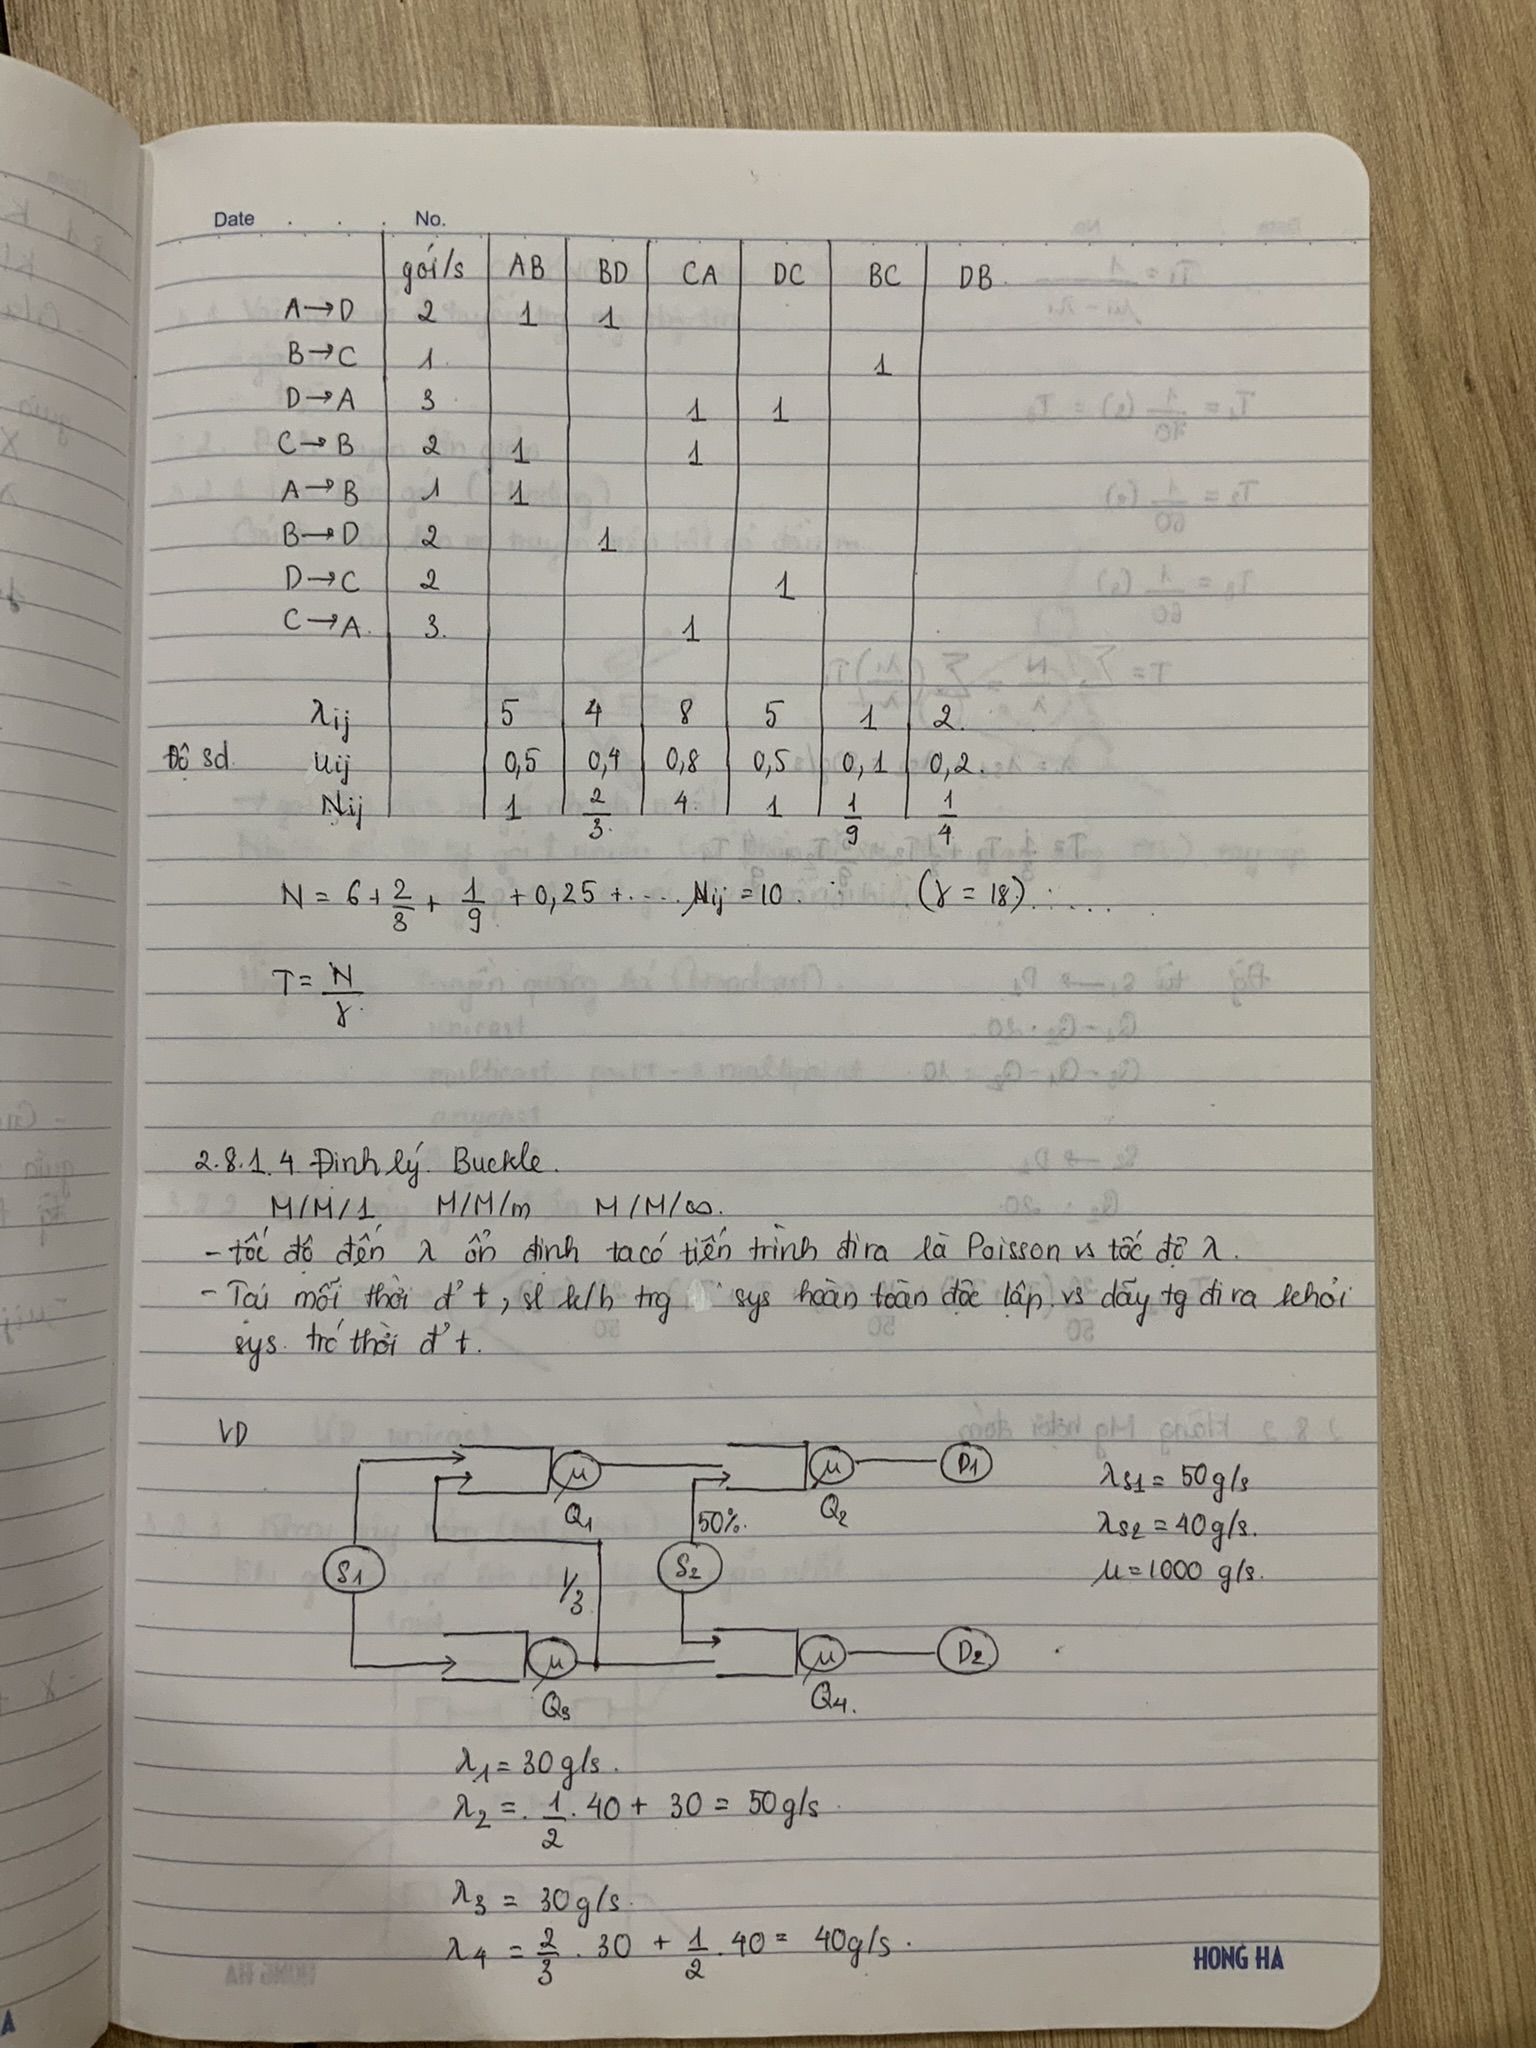 Date . . . No.
gói/s AB BD CA DC BC DB
A→D 2 1 1
B→C 1 1
D→A 3 1 1
C→B 2 1 1
A→B 1 1
B→D 2 1
D→C 2 1
C→A 3 1
λij 5 4 8 5 1 2
Độ sd uij 0,5 0,4 0,8 0,5 0,1 0,2
Nij 1 2/3 4 1 1/9 1/4
N = 6 + 2/3 + 1/9 + 0,25 + .... Nij = 10 (γ = 18) .....
T = N/γ
2.8.1.4 Định lý Buckle.
M/M/1 M/M/m M/M/∞.
- tốc độ đến λ ổn định ta có tiến trình đi ra là Poisson vs tốc độ λ.
- Tại mỗi thời đ' t, sl k/h trg sys hoàn toàn độc lập vs dãy tg đi ra khỏi
sys. trc thời đ' t.
VD
μ μ D1
Q1 Q2
λS1 = 50g/s
50%
λS2 = 40g/s.
S1 1/3 S2
μ = 1000 g/s.
μ μ D2
Q3 Q4.
λ1 = 30g/s.
λ2 = 1/2 . 40 + 30 = 50g/s
λ3 = 30g/s.
λ4 = 2/3 . 30 + 1/2 . 40 = 40g/s.
HONG HA